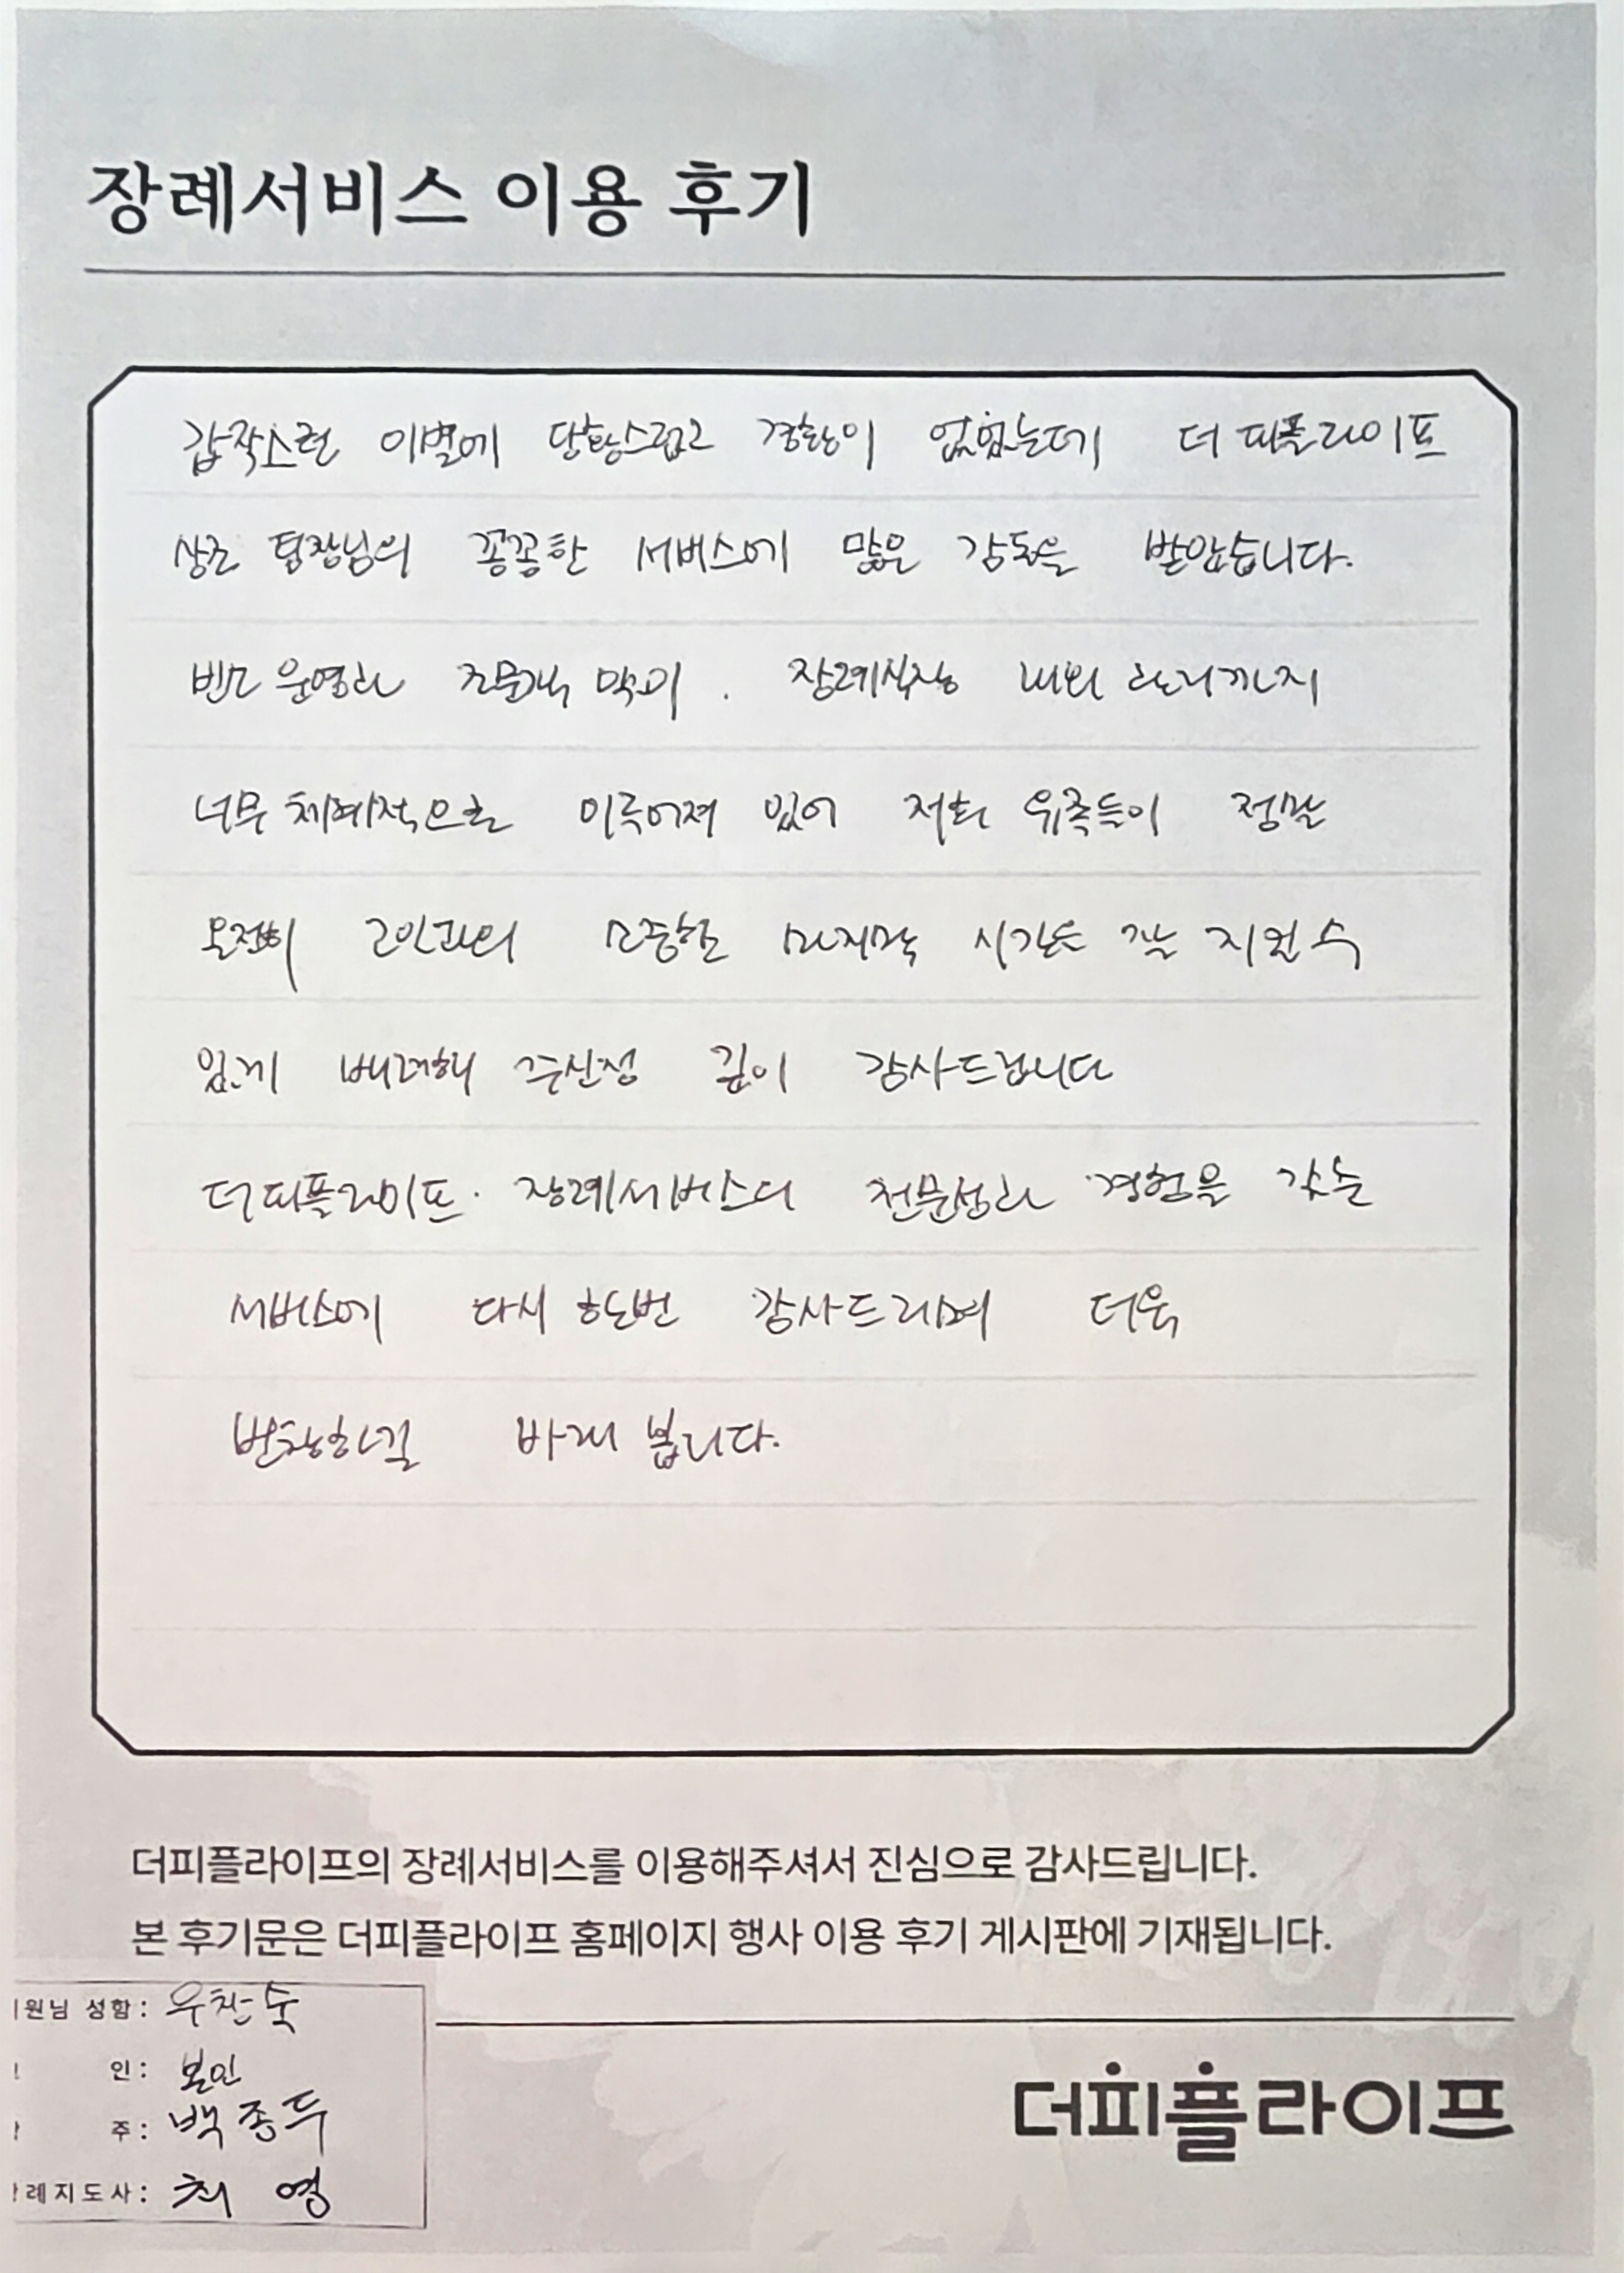 장례서비스 이용 후기
갑작스런 이별에 당황스럽고 경황이 없었는데 더피플라이프
상조 팀장님의 꼼꼼한 서비스에 많은 감동을 받았습니다.
빈소 운영과 조문객 맞이. 장례식장 내외 관리까지
너무 체계적으로 이루어져 있어 저희 유족들이 정말
온전히 고인과의 소중한 마지막 시간을 잘 지킬 수
있게 배려해 주신점 깊이 감사드립니다
더피플라이프. 장례서비스의 전문성과 경험을 갖춘
서비스에 다시 한번 감사드리며 더욱
번창하길 바래 봅니다.
더피플라이프의 장례서비스를 이용해주셔서 진심으로 감사드립니다.
본 후기문은 더피플라이프 홈페이지 행사 이용 후기 게시판에 기재됩니다.
원님 성함: 우찬숙
인: 본인
주: 백종두
례지도사: 최 영
더피플라이프